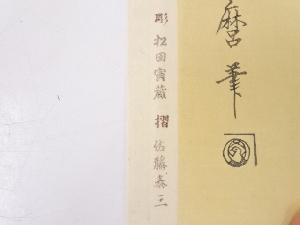 麿筆
彫 松田寅蔵 摺 佐藤泰三